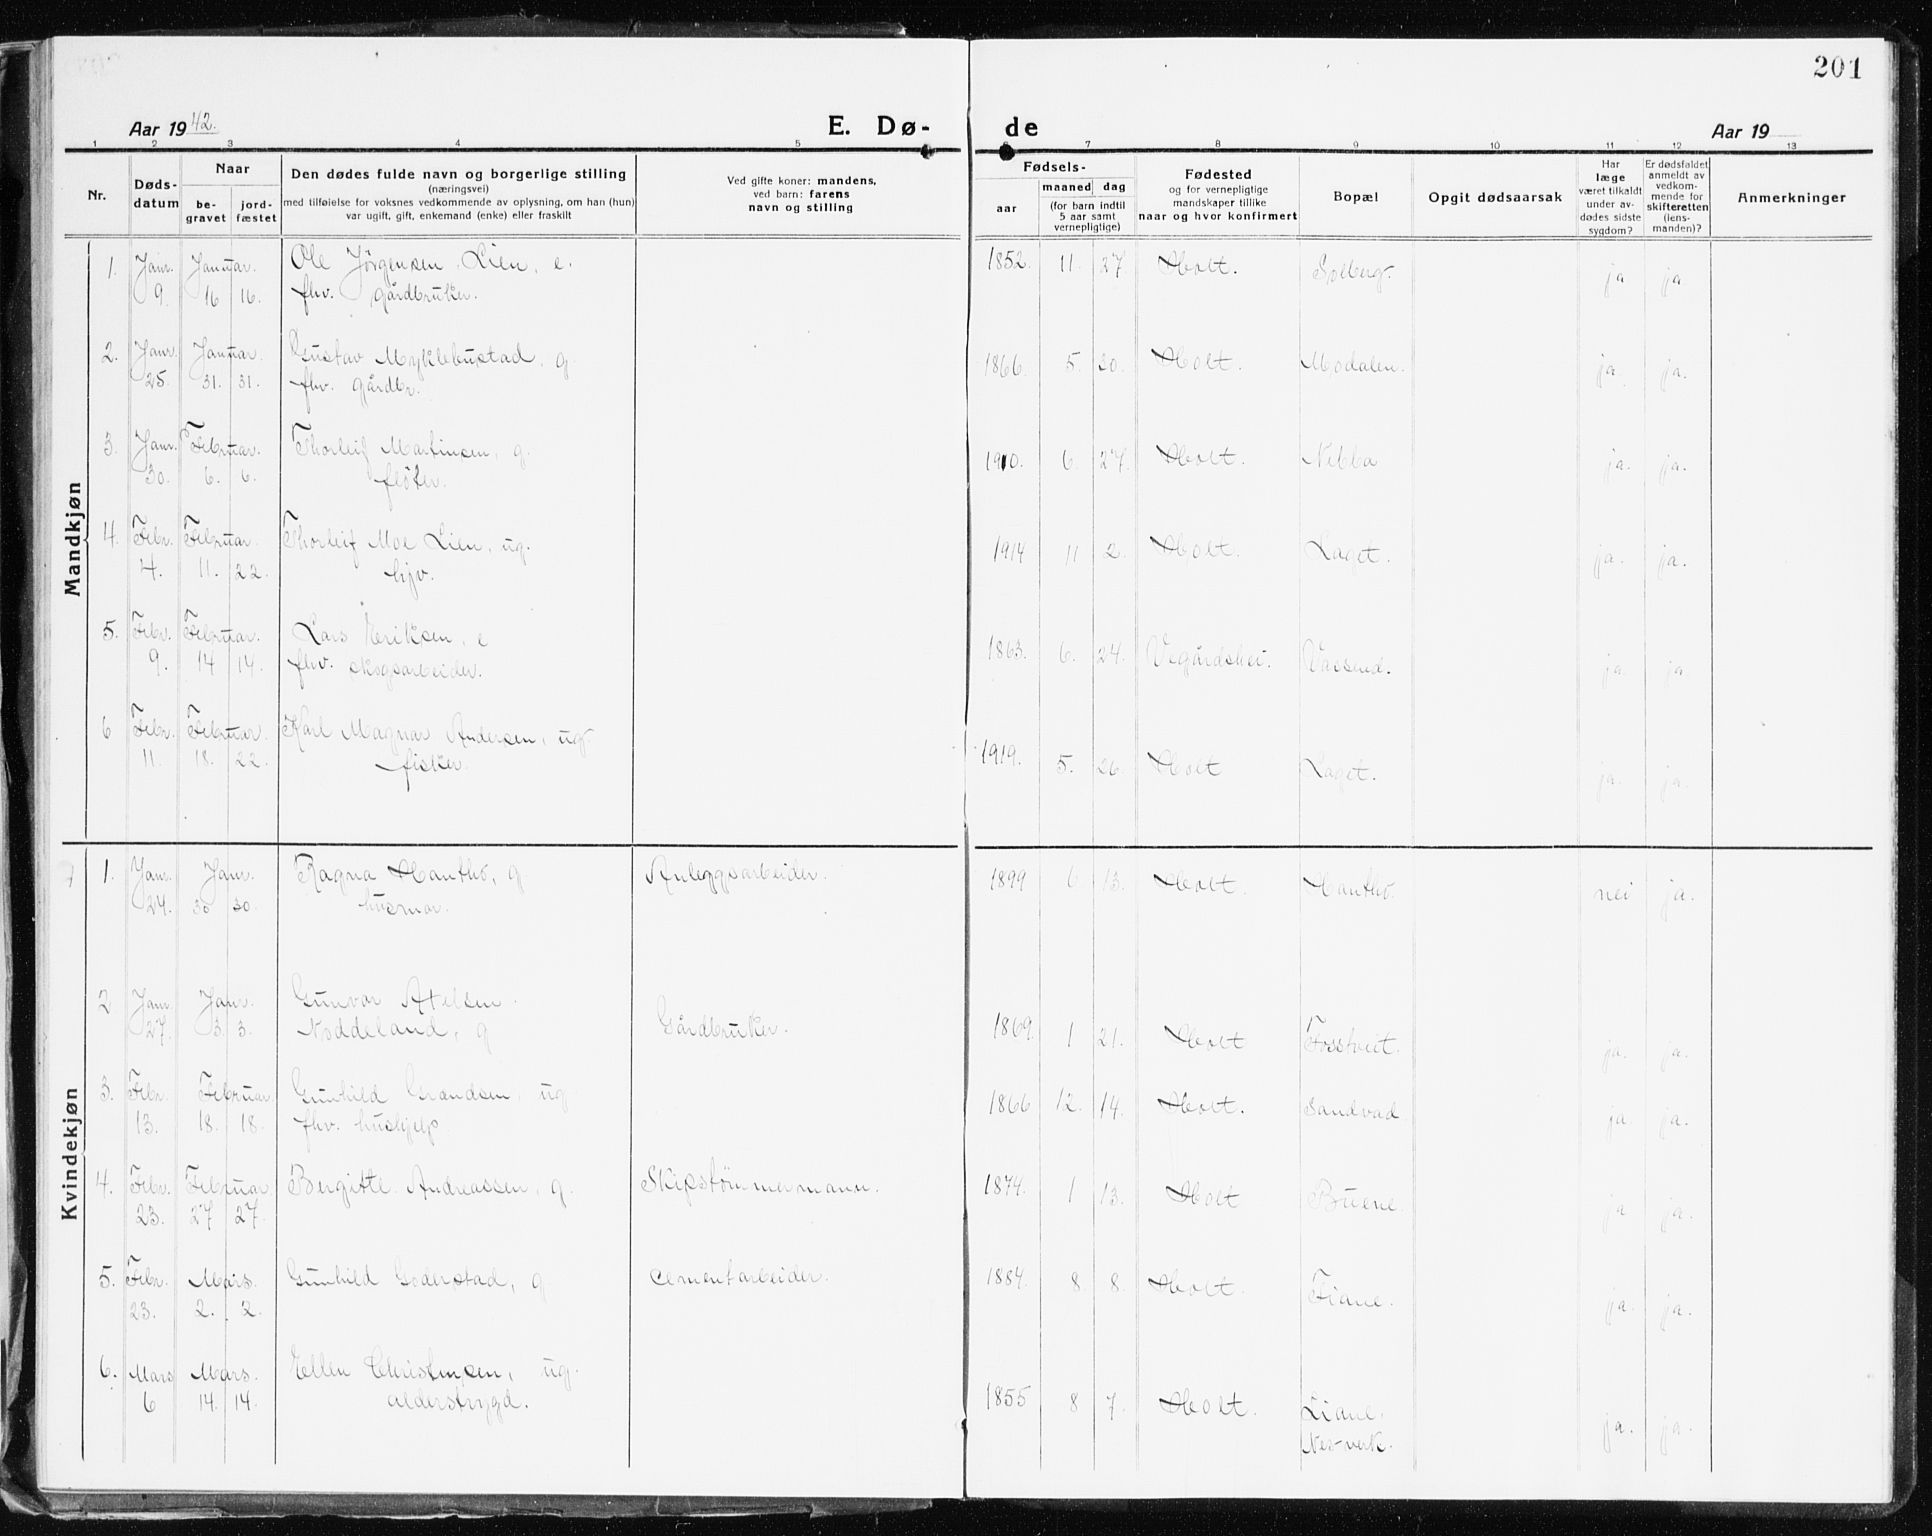 201
Aar 1942.
E. Dø-
de
Aar 19
1 2 3 4 5 6 7 8 9 10 11 12 13
Nr.
Døds-
datum
Naar
be-
gravet
jord-
fæstet
Den dødes fulde navn og borgerlige stilling
(næringsvei)
med tilføielse for voksnes vedkommende av oplysning, om han (hun)
var ugift, gift, enkemand (enke) eller fraskilt
Ved gifte koner: mandens,
ved barn: farens
navn og stilling
Fødsels-
aar
maaned dag
(for barn indtil
5 aar samt
vernepligtige)
Fødested
og for vernepligtige
mandskaper tillike
naar og hvor konfirmert
Bopæl
Opgit dødsaarsak
Har
læge
været tilkaldt
under av-
dødes sidste
sygdom?
Er dødsfaldet
anmeldt av
vedkom-
mende for
skifteretten
(lens-
manden)?
Anmerkninger
Mandkjøn
1. Janr. Januar. Ole Jörgensen Lien, e. 1852. 11. 27. Holt. Solberg. ja ja
9. 16 16. fhv. gårdbruker.
2. Janr. Januar. Gustav Myklebustad, g. 1866. 5. 20. Holt. Modalen. ja. ja.
25. 31. 31. fhv. gårdbr.
3. Janr. Februar. Thorleif Martinsen, g. 1910. 6. 27. Holt. Nebba ja. ja.
30. 6. 6. fløter.
4. Febr. Februar. Thorleif Moe Lien, ug. 1914 11 2. Holt. Laget. ja. ja.
4. 11. 22.
5. Febr. Februar. Lars Eriksen, e 1863. 6. 24. Vegårdshei. Vassend. ja. ja
9. 14 14. fhv. skogsarbeider.
6 Febr. Februar. Karl Magnar Andersen, ug. 1919. 5. 26. Holt Laget. ja. ja.
11. 18. 22. fisker.
Kvindekjøn
1. Janr. Janr. Ragna Hanthö, g Anleggsarbeider. 1899 6 13. Holt. Hanthö. nei ja.
24. 30 30. husmor.
2 Janr. Janr. Gunvor Axelsen
27. 3. 3. Noddeland, g Gårdbruker. 1869. 1 21. Holt Fosstveit. ja. ja.
3. Febr. Februar. Gunhild Grandsen, ug. 1866 12. 14. Holt. Sandvad ja ja.
13. 18. 18. fhv. hushjelp
4. Febr. Februar Bergitte Andreassen, g. Skipstömmermann. 1874. 1 13. Holt Buene. ja ja.
23. 27 27.
5. Febr. Mars. Gunhild Goderstad, g Cementarbeider. 1884. 8. 8. Holt. Fiane. ja. ja.
23. 2. 2.
6. Mars Mars. Ellen Christensen, ug. 1855 8 7. Holt. Liane. ja. ja.
6 14. 14. alderstrygd. Nes-verk.